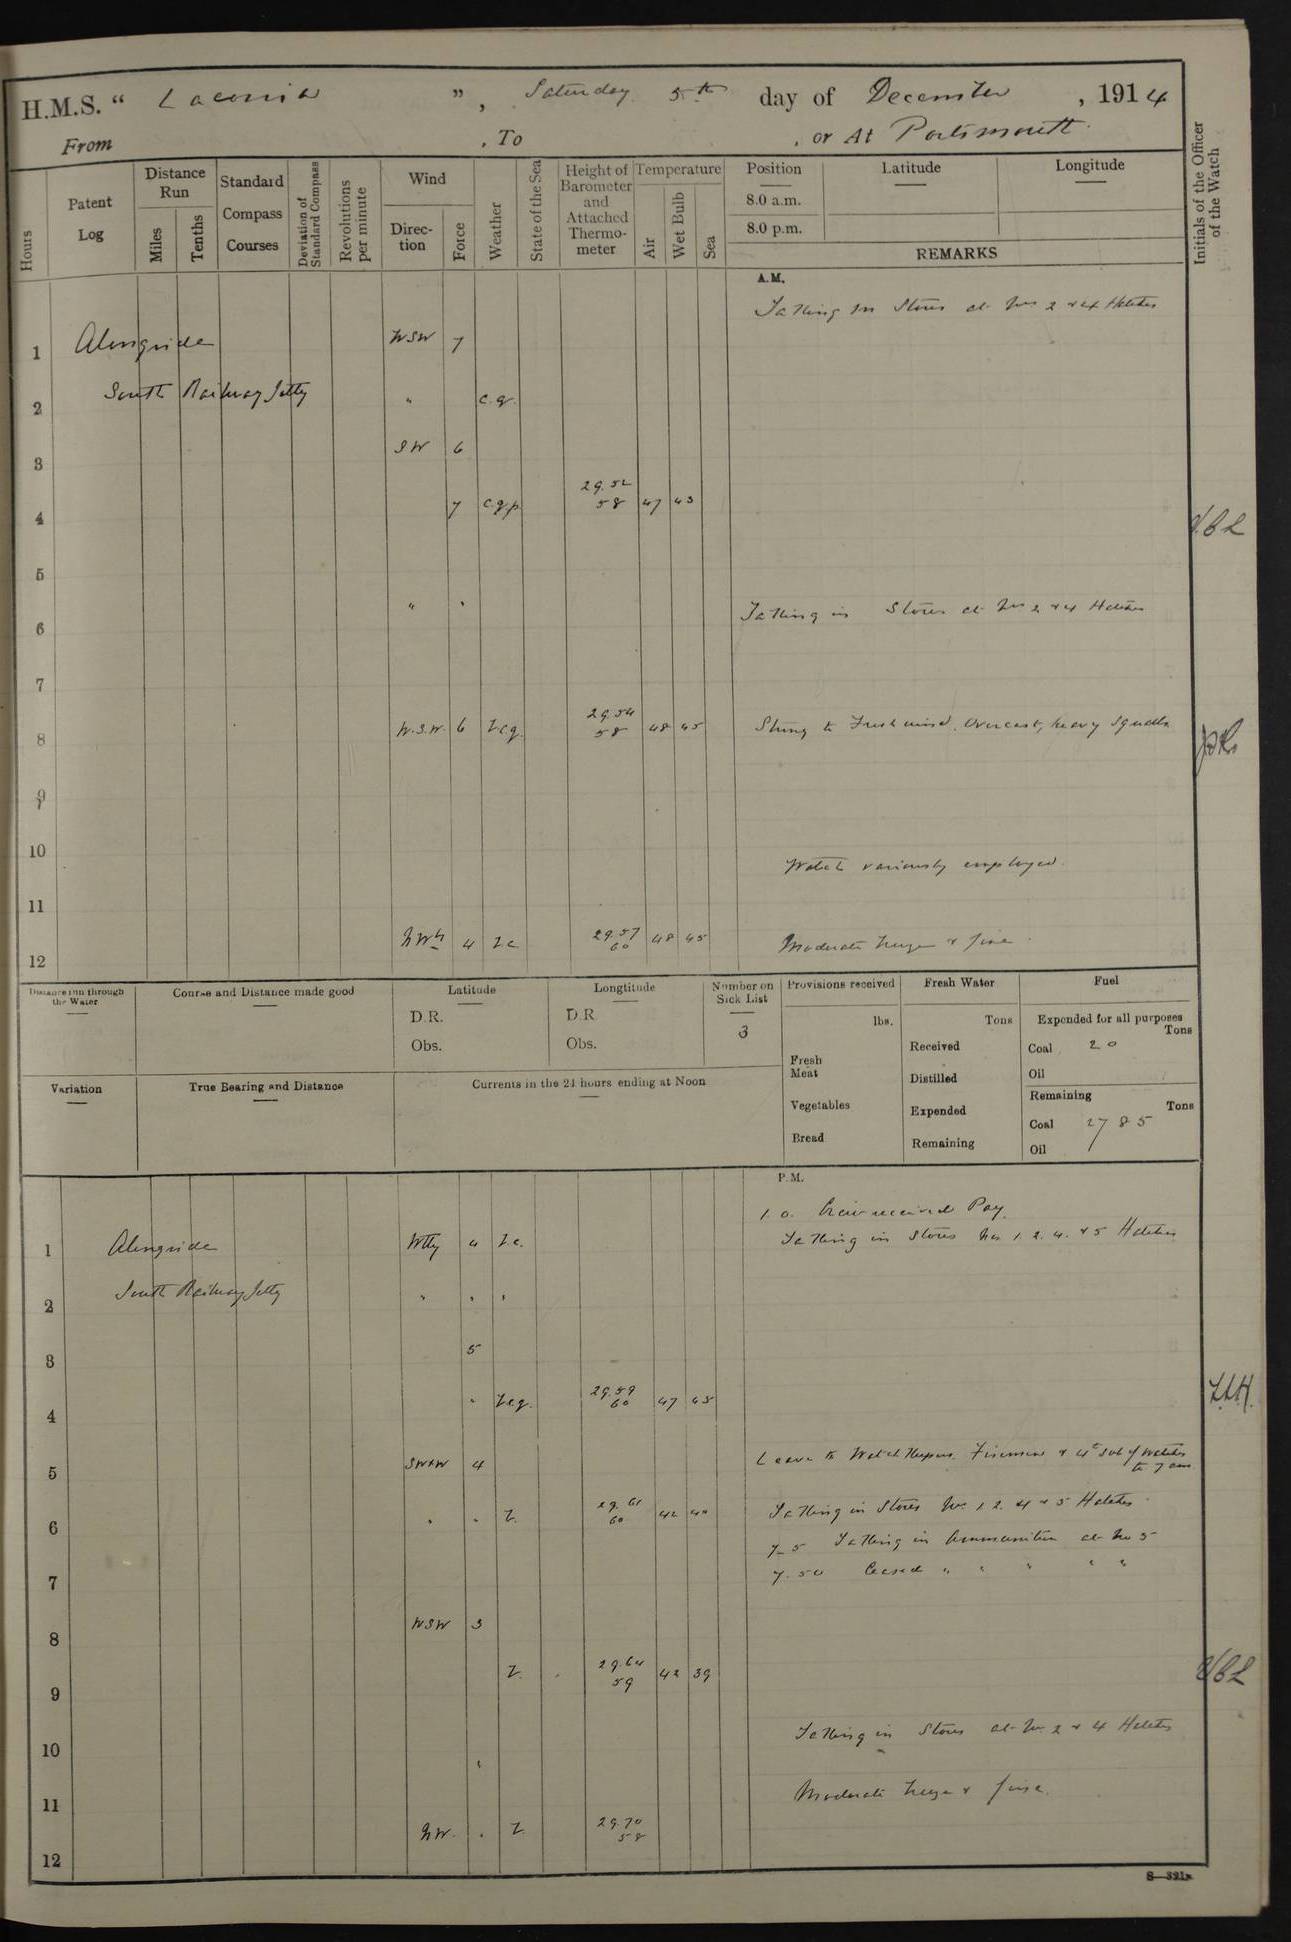 H.M.S. " Laconia ", Saturday 5th day of December, 1914
From , To , or At Portsmouth.
Hours
Patent Log
Distance Run
Miles
Tenths
Standard Compass Courses
Deviation of Standard Compass
Revolutions per minute
Wind
Direction
Force
Weather
State of the Sea
Height of Barometer and Attached Thermometer
Temperature
Air
Wet Bulb
Sea
Position
8.0 a.m.
8.0 p.m.
Latitude
Longitude
REMARKS
Initials of the Officer of the Watch
A.M.
Taking in Stores at Nos 2 & 4 Hatches
1 Alongside WSW 7
2 South Railway Jetty " c.q.
3 SW 6
4 7 c.q.p. 29.52 58 47 43
5
6 " " Taking in Stores at Nos 2 & 4 Hatches
7
8 W.S.W. 6 b.c.q. 29.54 58 48 45 Strong to Fresh wind, Overcast, heavy squalls
9
10 Watch variously employed.
11
12 4 bc 29.57 60 48 45 Moderate breeze & fine.
Distance run through the Water
Course and Distance made good
Latitude
D.R.
Obs.
Longtitude
D.R.
Obs.
Number on Sick List
3
Provisions received
lbs.
Fresh Meat
Vegetables
Bread
Fresh Water
Tons
Received
Distilled
Expended
Remaining
Fuel
Expended for all purposes
Tons
Coal 20
Oil
Remaining
Tons
Coal 2785
Oil
Variation
True Bearing and Distance
Currents in the 24 hours ending at Noon
P.M.
1.0. Crew received Pay.
1 Alongside Wtly 4 b.c. Taking in Stores Nos 1. 2. 4. & 5 Hatches
2 South Railway Jetty " " "
3 5
4 " b.c.q. 29.59 60 47 45
5 SWxW 4 Leave to Watchkeepers. Firemen & 4th sub of watches to 7 am
6 " " b. 29.61 60 42 40 Taking in Stores Nos 1. 2. 4 & 5 Hatches.
7-5 Taking in Ammunition at No 5
7 7.50 Ceased " " " " "
8 WSW 3
b. 29.64 59 42 39
9
Taking in Stores at No 2 & 4 Hatches
10 "
11 Moderate breeze & fine.
NW. " b. 29.70 58
12
S-321A